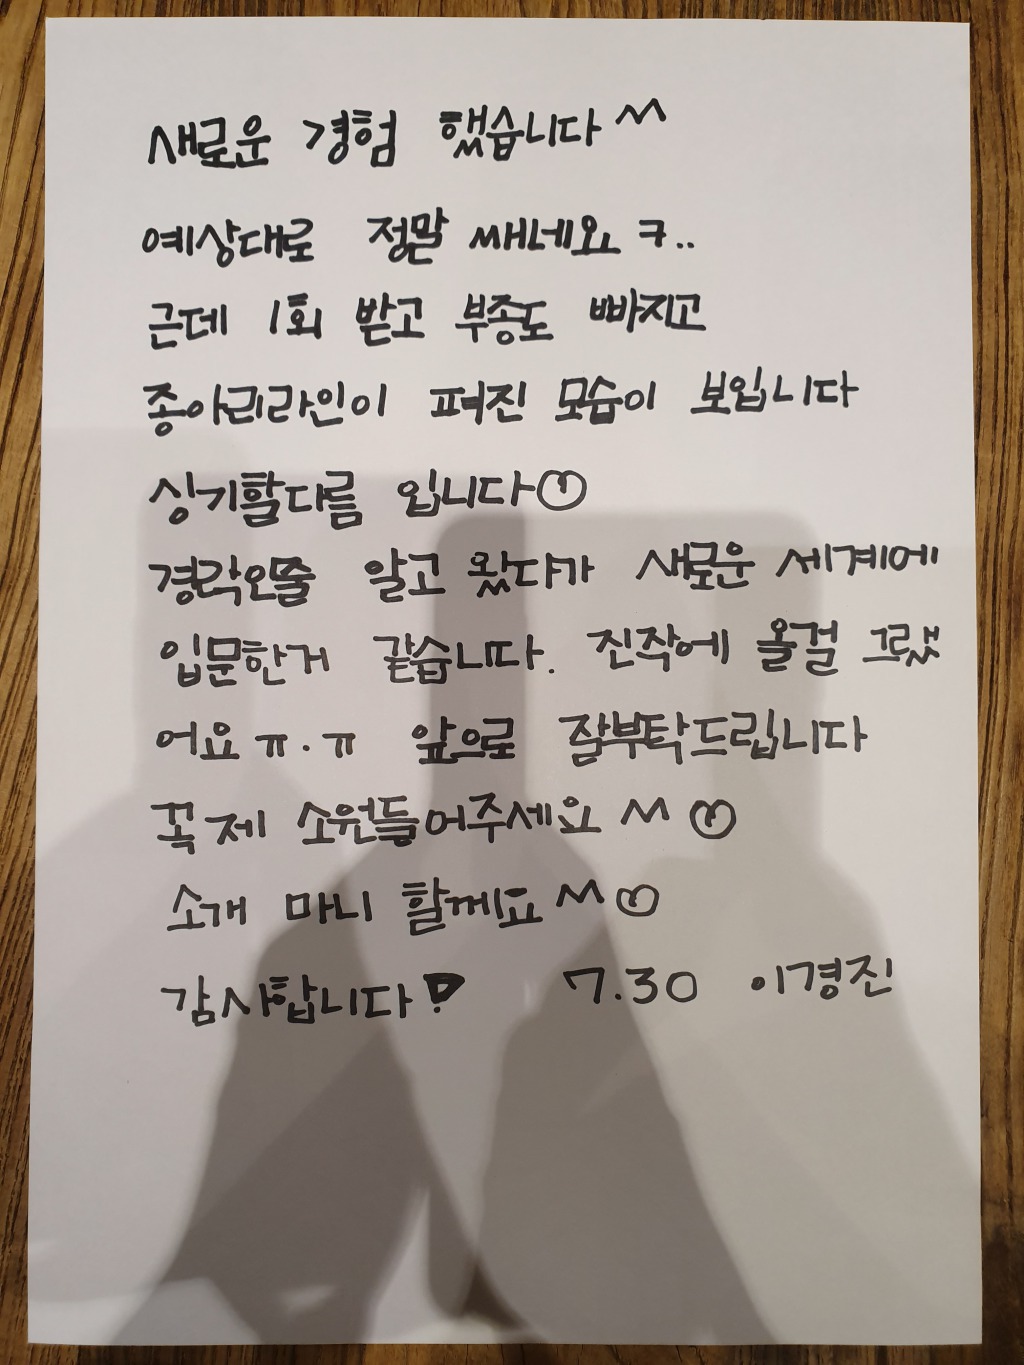 새로운 경험 했습니다 ^^
예상대로 정말 쌔네요 ㅋ..
근데 1회 받고 부종도 빠지고
종아리라인이 펴진 모습이 보입니다
싱기할다름 입니다♡
경락인줄 알고 왔다가 새로운 세계에
입문한거 같습니다. 진작에 올걸 그랬
어요 ㅠ.ㅠ 앞으로 잘부탁드립니다
꼭 제 소원들어주세요 ^^ ♡
소개 마니 할께요 ^^ ♡
감사합니다! 7.30 이경진